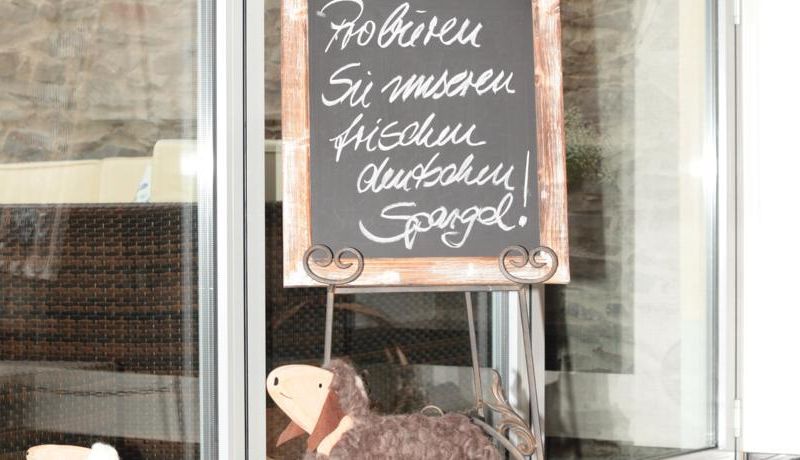 Probieren
Sie unseren
frischen
deutschen
Spargel!